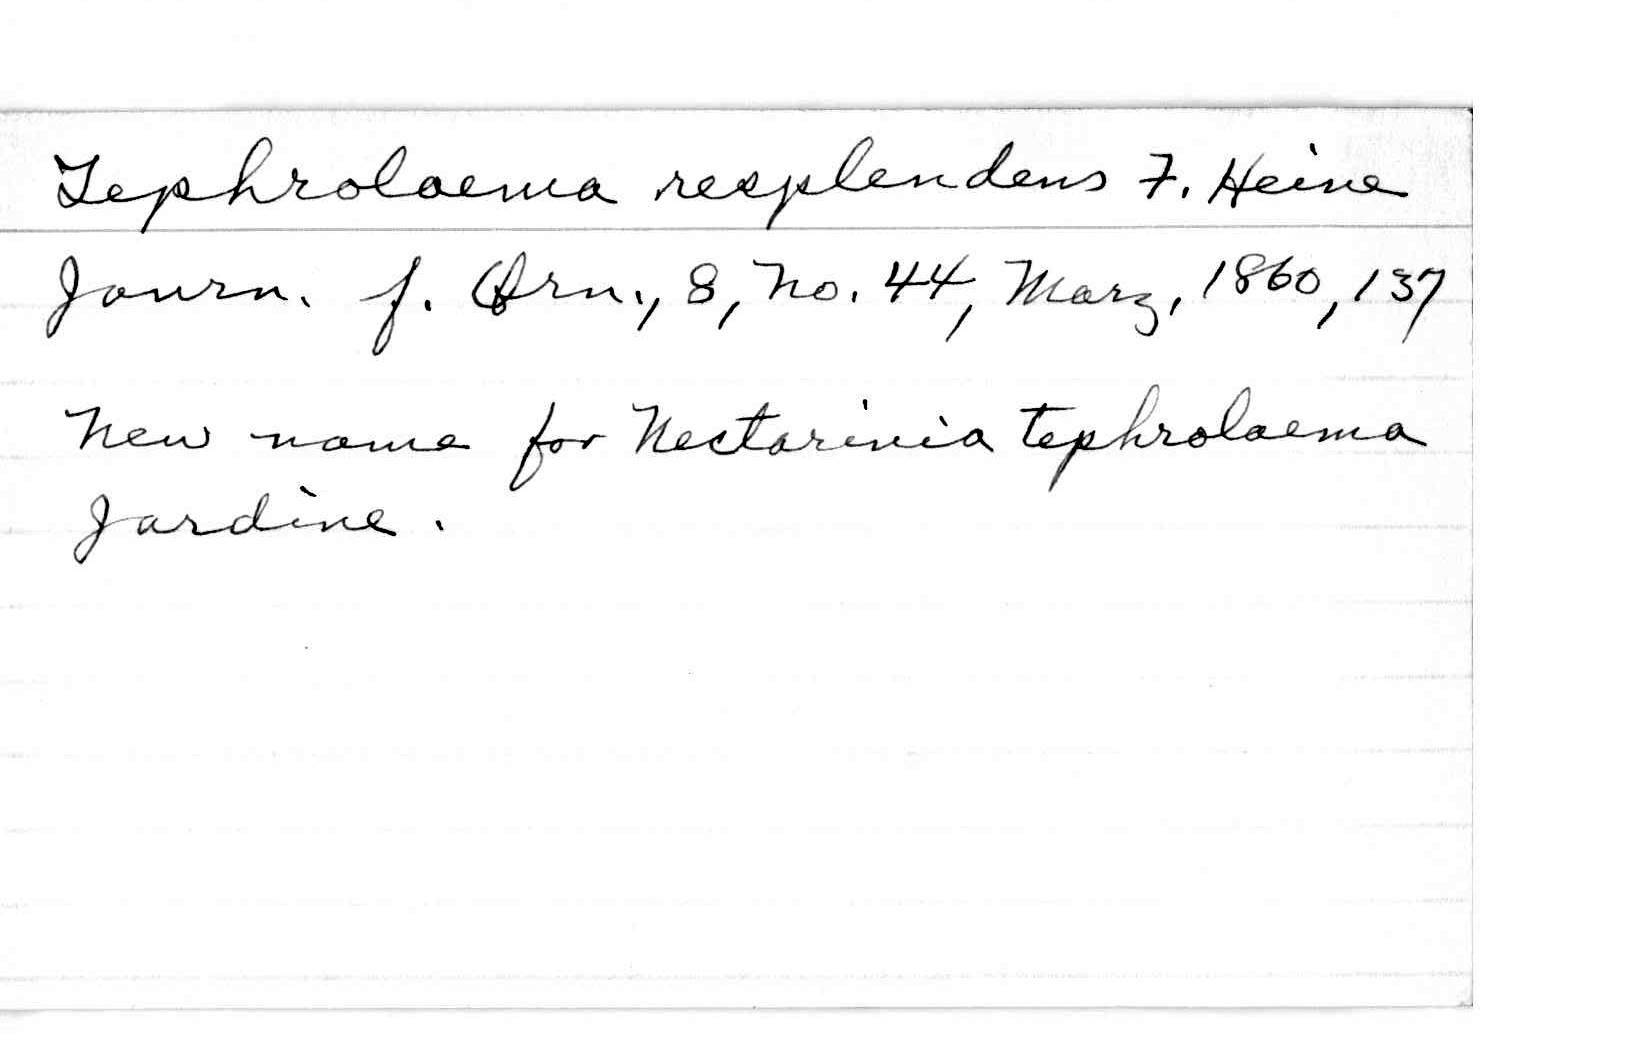 Tephrolaema resplendens F. Heine
Journ. f. Orn., 8, no. 44, Marz, 1860, 137
New name for Nectarinia tephrolaema
Jardine.